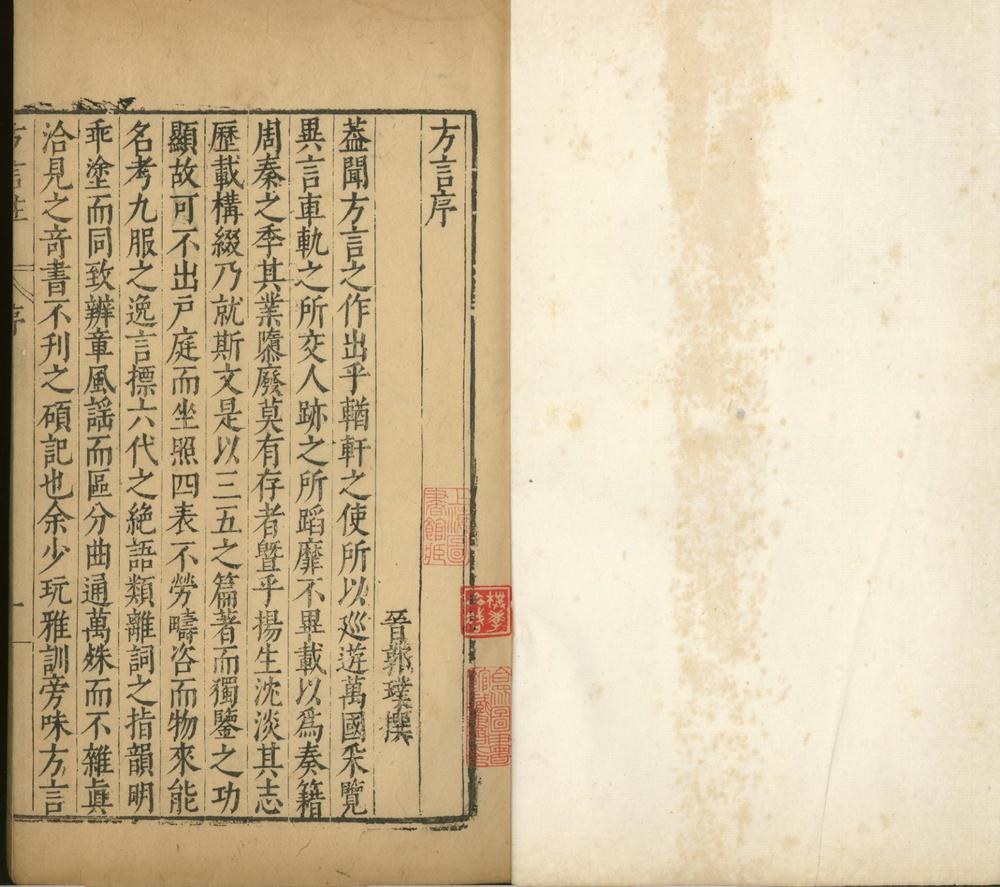 方言序
晉郭璞撰
葢聞方言之作出乎輶軒之使所以巡遊萬國釆覽
異言車軌之所交人跡之所蹈靡不畢載以爲奏籍
周秦之季其業隳廢莫有存者曁乎揚生沈淡其志
歷載構綴乃就斯文是以三五之篇著而獨鑒之功
顯故可不出戶庭而坐照四表不勞疇咨而物來能
名考九服之逸言摽六代之絶語類離詞之指韻明
乖塗而同致辨章風謡而區分曲通萬殊而不雜眞
洽見之奇書不刋之碩記也余少玩雅訓旁味方言
方言
序
一
上海圖書館藏
合眾圖書館藏書印